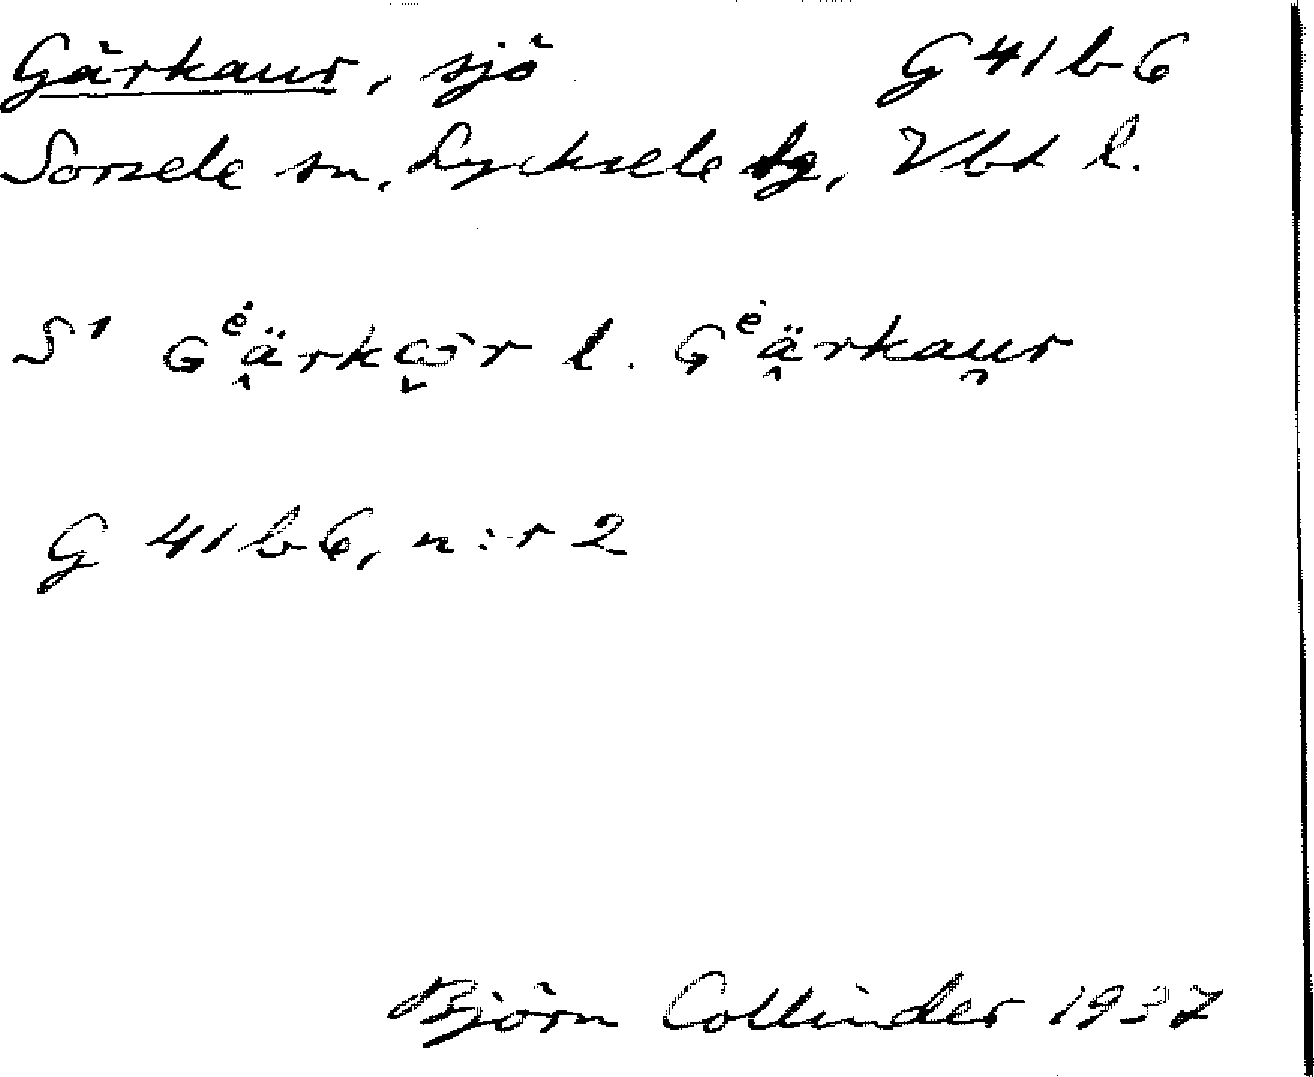 Gärkaur, sjö G 41 b 6
Sorsele sn, Lycksele lg, Vbt l.
S1 Gėä̭rkǭ̬r l. Gėä̭rkau̯r
G 41 b 6, n:r 2
Björn Collinder 1937